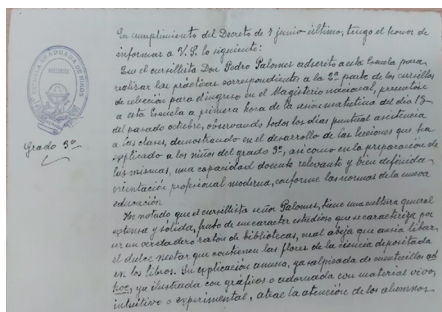 En cumplimiento del Decreto de 7 junio último, tengo el honor de
informar a V.S. lo siguiente:
Que el cursillista Don Pedro Palomer adscrito a esta Escuela para
realizar las prácticas correspondientes a la 2ª parte de los cursillos
de selección para el ingreso en el Magisterio nacional, presentóse
a esta Escuela a primera hora de la sesión matutina del día 17
del pasado octubre, observando todos los días puntual asistencia
Grado 3º
a las clases, demostrando en el desarrollo de las lecciones que ha
explicado a los niños del grado 3º, así como en la preparación de
las mismas, una capacidad docente relevante y bien definida
orientación profesional moderna, conforme las normas de la nueva
educación.
He notado que el cursillista señor Palomer, tiene una cultura general
extensa y solida, fruto de un caracter estudioso que se caracteriza por
ser un verdadero ratón de bibliotecas, cual abeja que ansía libar
el dulce nectar que contienen las flores de la ciencia depositada
en los libros. Su explicación amena, ya salpicada de cuentecillos ad
hoc, ya ilustrada con gráficos o adornada con material vivo,
intuitivo o experimental, atrae la atención de los alumnos